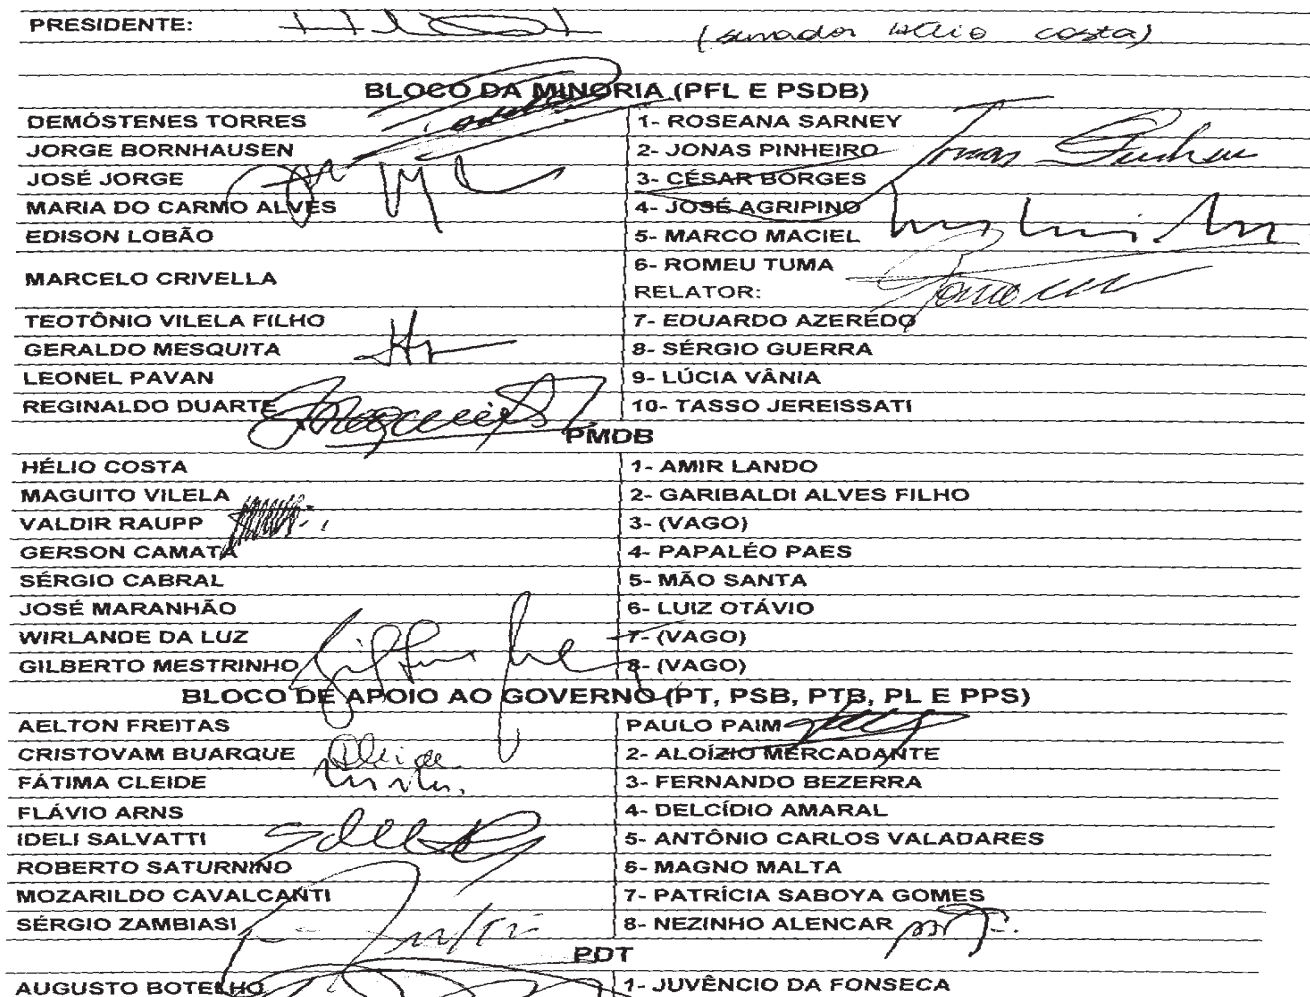 PRESIDENTE: (senador Hélio Costa)
BLOCO DA MINORIA (PFL E PSDB)
DEMÓSTENES TORRES 1- ROSEANA SARNEY
JORGE BORNHAUSEN 2- JONAS PINHEIRO Jonas Pinheiro
JOSÉ JORGE 3- CÉSAR BORGES
MARIA DO CARMO ALVES 4- JOSÉ AGRIPINO
EDISON LOBÃO 5- MARCO MACIEL
MARCELO CRIVELLA 6- ROMEU TUMA
RELATOR:
TEOTÔNIO VILELA FILHO 7- EDUARDO AZEREDO
GERALDO MESQUITA 8- SÉRGIO GUERRA
LEONEL PAVAN 9- LÚCIA VÂNIA
REGINALDO DUARTE 10- TASSO JEREISSATI
PMDB
HÉLIO COSTA 1- AMIR LANDO
MAGUITO VILELA 2- GARIBALDI ALVES FILHO
VALDIR RAUPP 3- (VAGO)
GERSON CAMATA 4- PAPALÉO PAES
SÉRGIO CABRAL 5- MÃO SANTA
JOSÉ MARANHÃO 6- LUIZ OTÁVIO
WIRLANDE DA LUZ 7- (VAGO)
GILBERTO MESTRINHO 8- (VAGO)
BLOCO DE APOIO AO GOVERNO (PT, PSB, PTB, PL E PPS)
AELTON FREITAS PAULO PAIM
CRISTOVAM BUARQUE 2- ALOÍZIO MERCADANTE
FÁTIMA CLEIDE 3- FERNANDO BEZERRA
FLÁVIO ARNS 4- DELCÍDIO AMARAL
IDELI SALVATTI 5- ANTÔNIO CARLOS VALADARES
ROBERTO SATURNINO 6- MAGNO MALTA
MOZARILDO CAVALCANTI 7- PATRÍCIA SABOYA GOMES
SÉRGIO ZAMBIASI 8- NEZINHO ALENCAR
PDT
AUGUSTO BOTELHO 1- JUVÊNCIO DA FONSECA